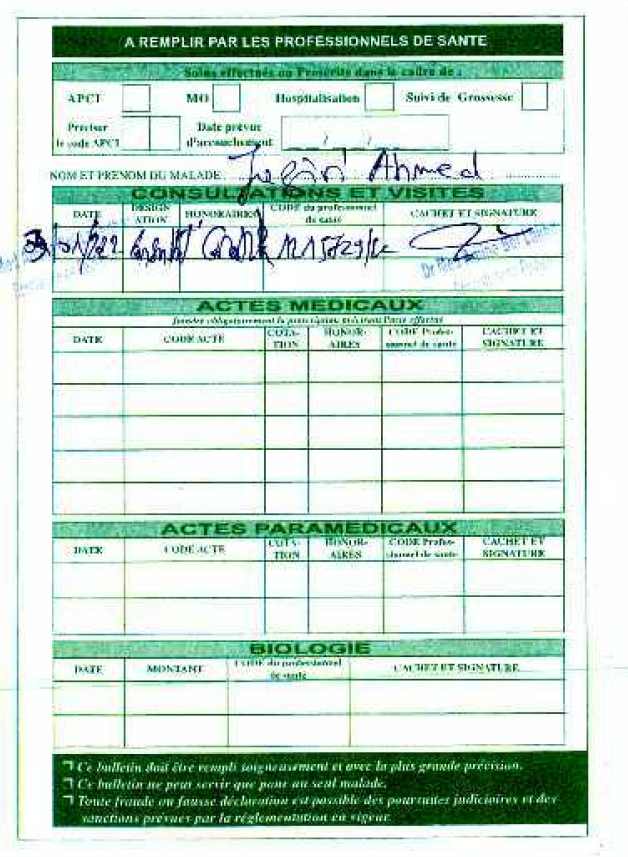 A REMPLIR PAR LES PROFESSIONNELS DE SANTE
Soins effectués ou Prescrits dans le cadre de :
APCI MO Hospitalisation Suivi de Grossesse
Préciser le code APCI
Date prévue d'accouchement / /
NOM ET PRENOM DU MALADE : Ahmed
CONSULTATIONS ET VISITES
DATE DESIGNATION HONORAIRES CODE du professionnel de santé CACHET ET SIGNATURE
ACTES MEDICAUX
DATE CODE ACTE COTATION HONORAIRES CODE Professionnel de santé CACHET ET SIGNATURE
ACTES PARAMEDICAUX
DATE CODE ACTE COTATION HONORAIRES CODE Professionnel de santé CACHET ET SIGNATURE
BIOLOGIE
DATE MONTANT CODE du professionnel de santé CACHET ET SIGNATURE
Ce bulletin doit être rempli soigneusement et avec la plus grande précision.
Ce bulletin ne peut servir que pour un seul malade.
Toute fraude ou fausse déclaration est passible des poursuites judiciaires et des
sanctions prévues par la réglementation en vigeur.